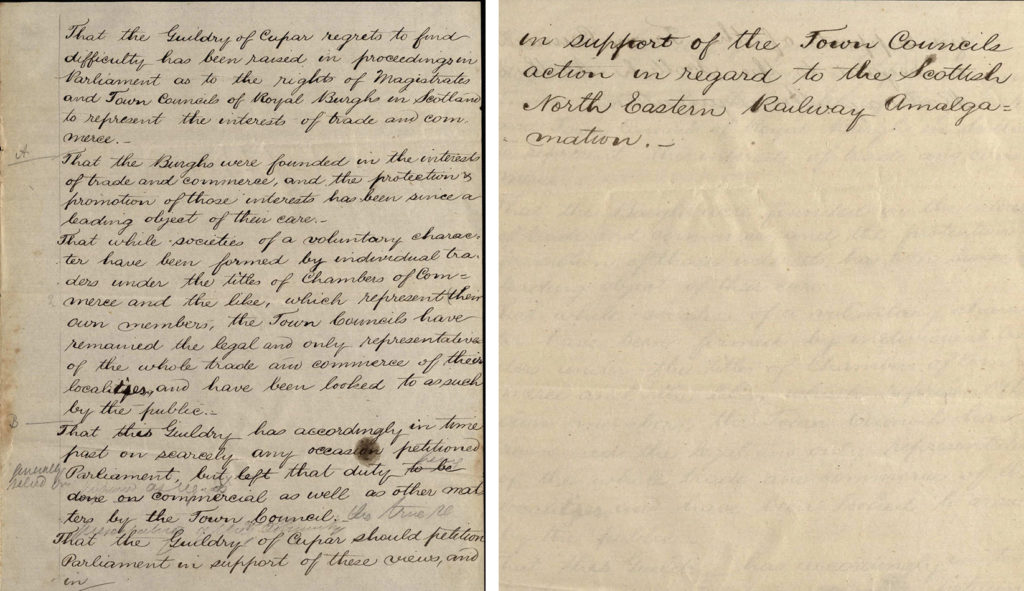 That the Guildry of Cupar regrets to find
difficulty has been raised in proceedings in
Parliament as to the rights of Magistrates
and Town Councils of Royal Burghs in Scotland
to represent the interests of trade and com-
merce.-
A
That the Burghs were founded in the interests
of trade and commerce, and the protection &
promotion of those interests has been since a
leading object of their care.-
That while societies of a voluntary charac-
ter have been formed by individual tra-
ders under the titles of Chambers of Com=
merce and the like, which represent their
own members, the Town Councils have
remained the legal and only representatives
of the whole trade and commerce of their
localities, and have been looked to as such
by the public.-
B
That this Guildry has accordingly in time
past on scarcely any occasion petitioned
Parliament, but left that duty to be
done on commercial as well as other mat-
ters by the Town Council.
That the Guildry of Cupar should petition
Parliament in support of these views, and
in
in support of the Town Councils
action in regard to the Scottish
North Eastern Railway Amalga=
mation.-